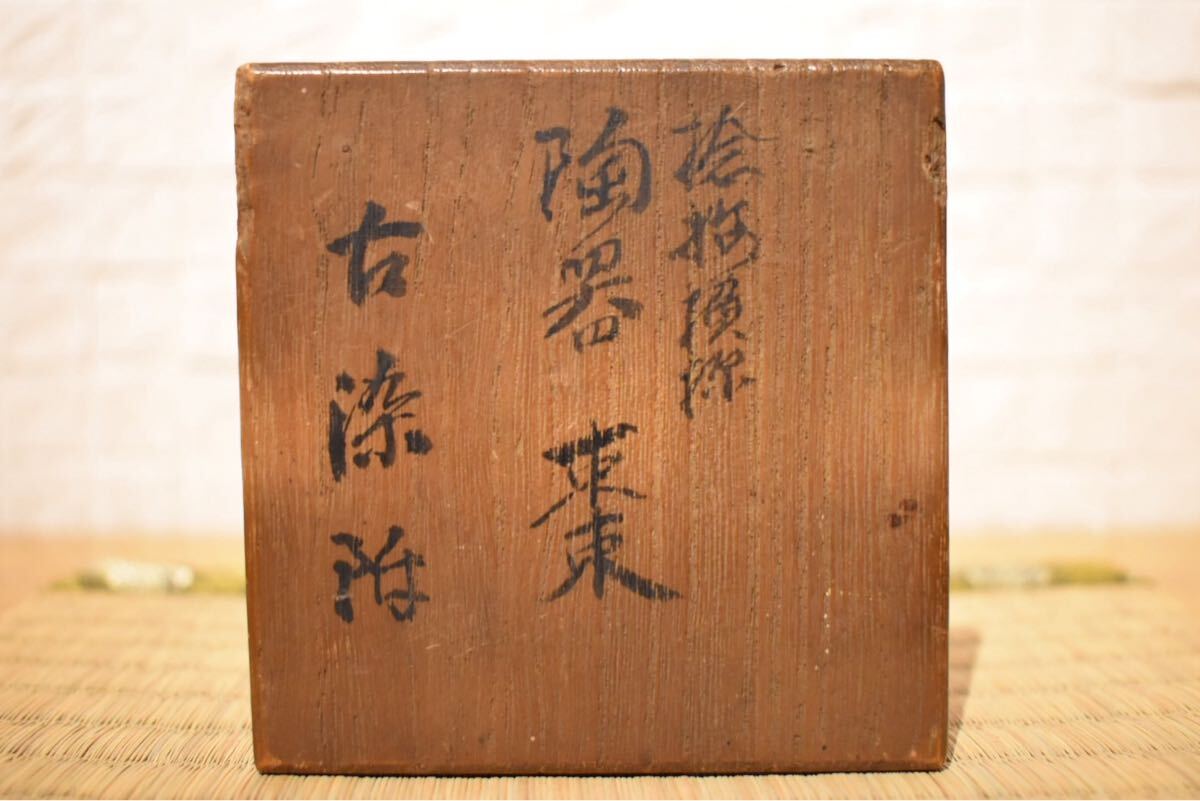 捻梅模様
陶器 棗
古染附